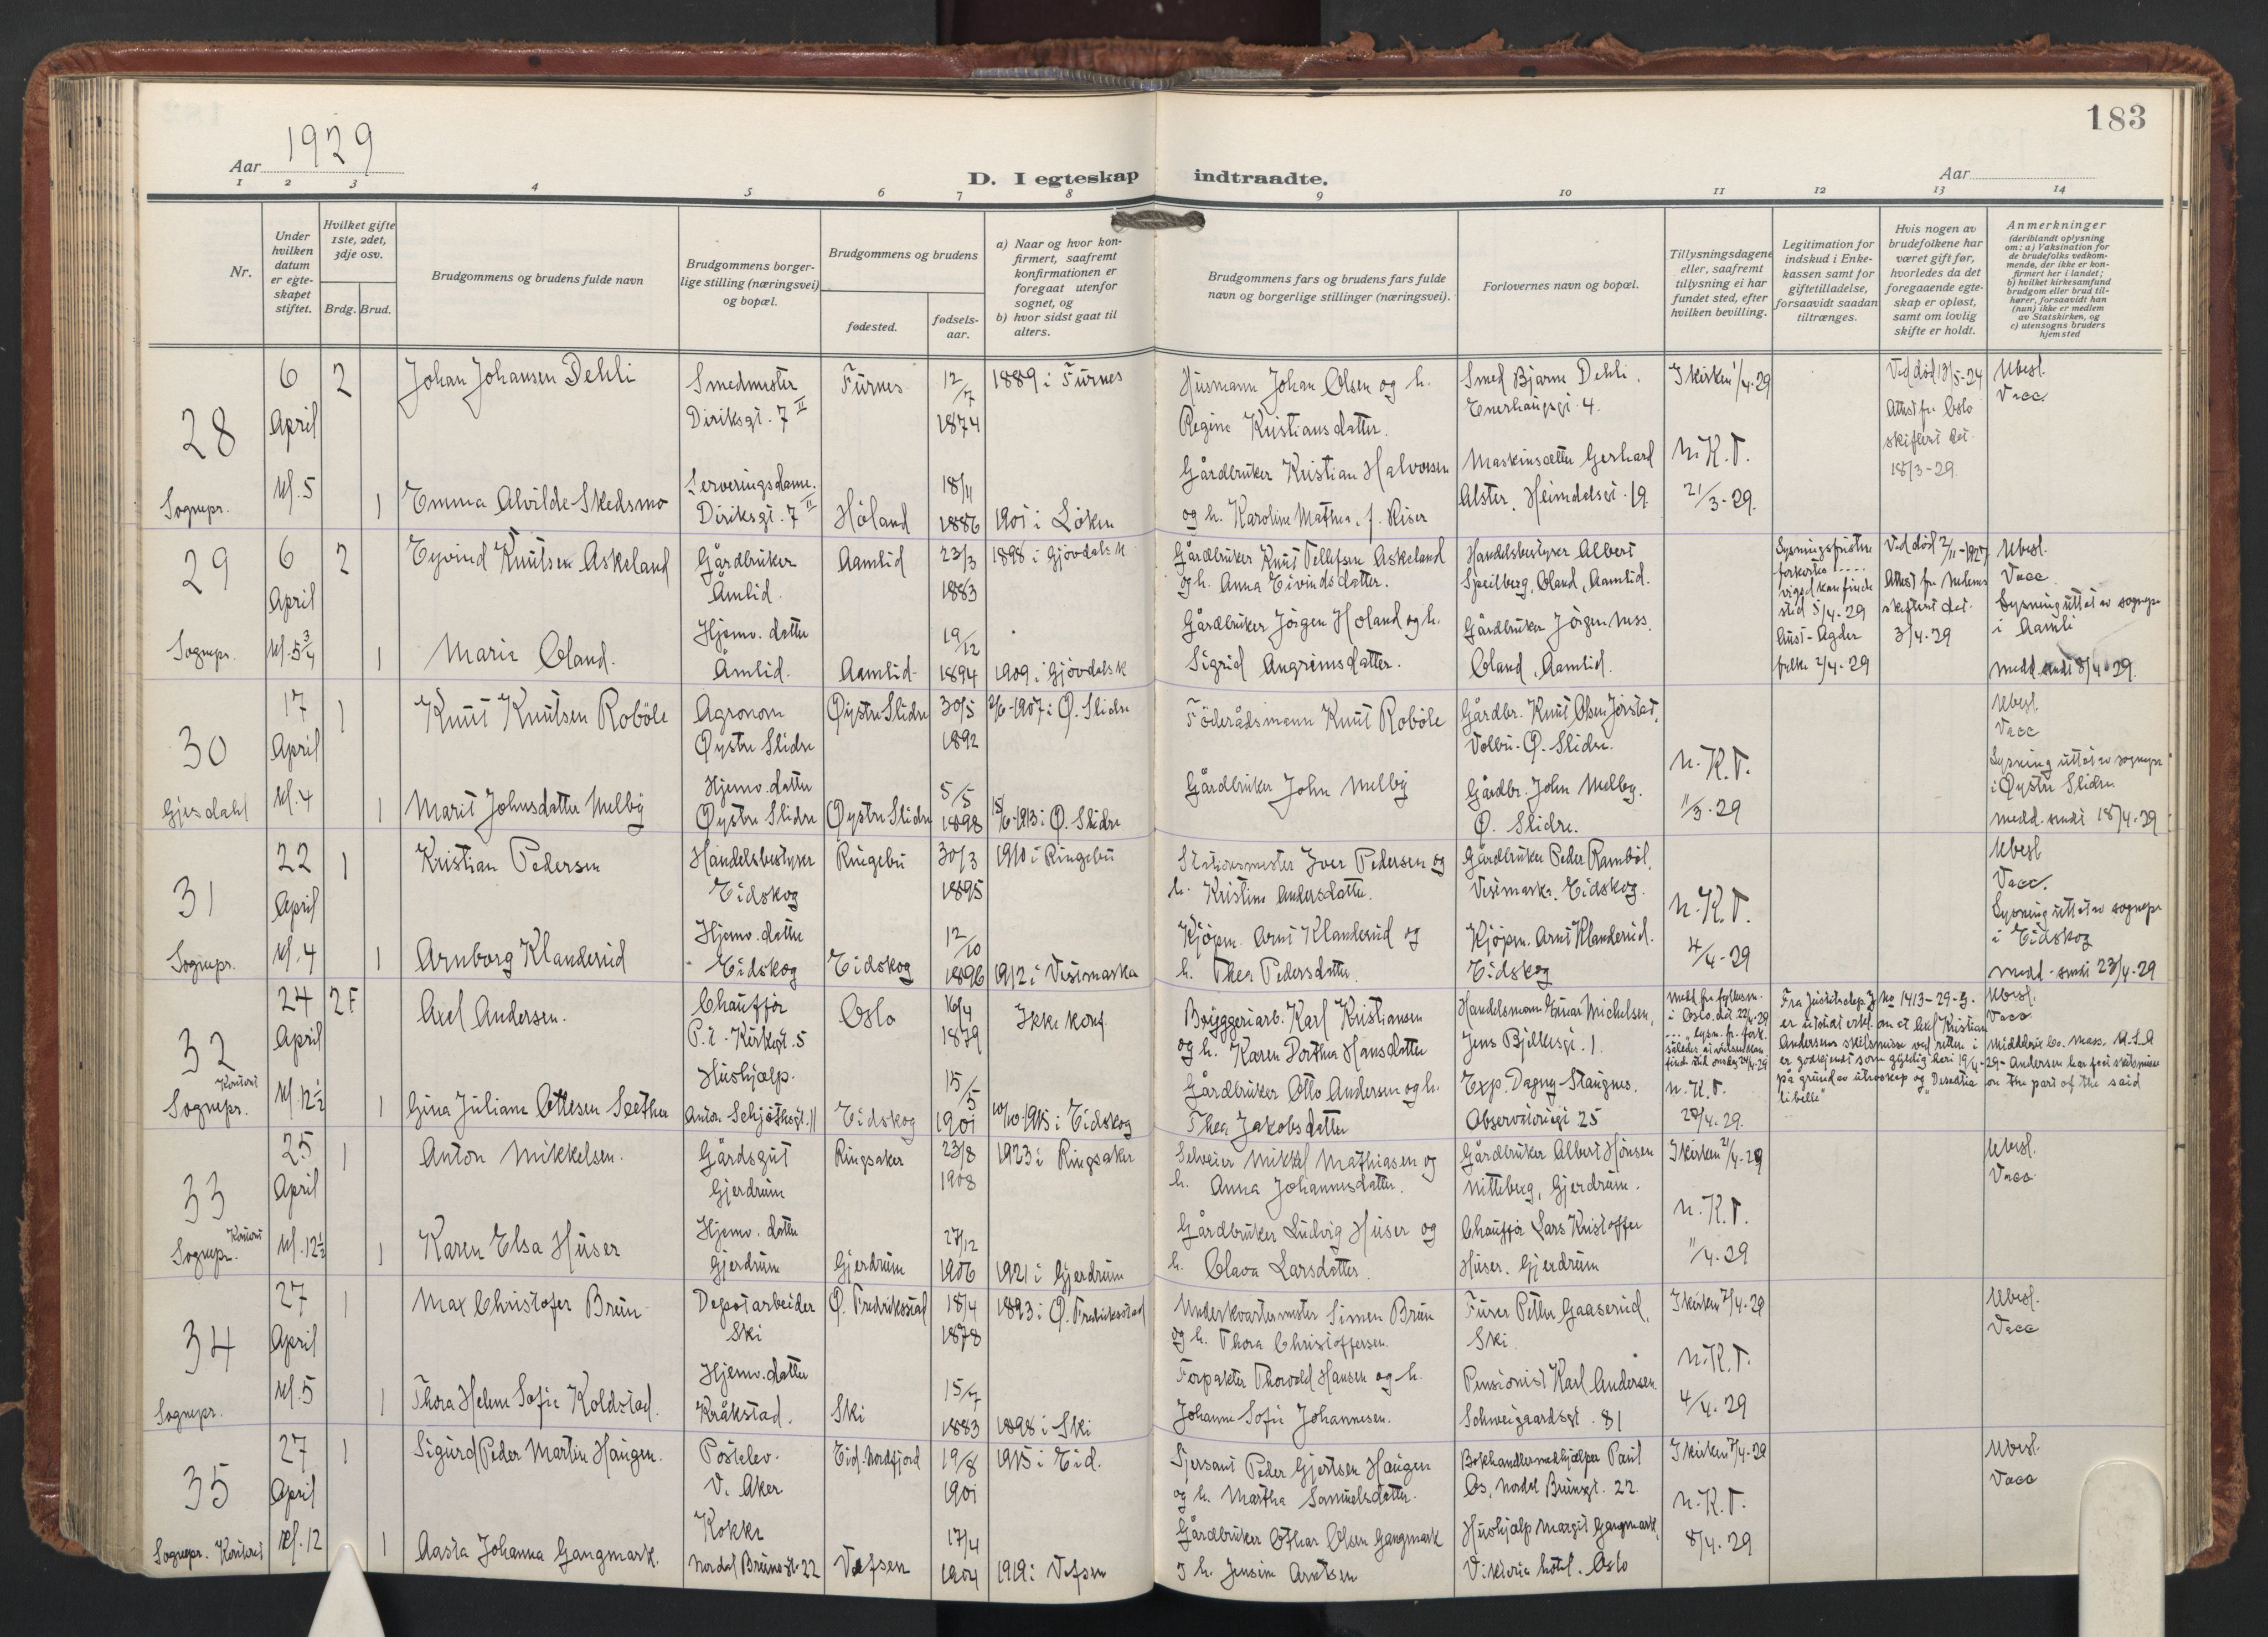 183
Aar 1929
D. I egteskap indtraadte.
Aar
1 2 3 4 5 6 7 8 9 10 11 12 13 14
Nr.
Under hvilken datum er egteskapet stiftet.
Hvilket gifte 1ste, 2det, 3dje osv.
Brdg. Brud.
Brudgommens og brudens fulde navn
Brudgommens borgerlige stilling (næringsvei) og bopæl.
Brudgommens og brudens
fødested.
fødselsaar.
a) Naar og hvor konfirmert, saafremt konfirmationen er foregaat utenfor sognet, og
b) hvor sidst gaat til alters.
Brudgommens fars og brudens fars fulde navn og borgerlige stillinger (næringsvei).
Forlovernes navn og bopæl.
Tillysningsdagene eller, saafremt tillysning ei har fundet sted, efter hvilken bevilling.
Legitimation for indskud i Enkekassen samt for giftetilladelse, forsaavidt saadan tiltrænges.
Hvis nogen av brudefolkene har været gift før, hvorledes da det foregaaende egteskap er opløst, samt om lovlig skifte er holdt.
Anmerkninger (deriblandt oplysning om: a) Vaksination for de brudefolks vedkommende, der ikke er konfirmert her i landet; b) hvilket kirkesamfund brudgom eller brud tilhører, forsaavidt han (hun) ikke er medlem av Statskirken, og c) utensogns bruders hjemsted
28 Sognepr.
6 April kl. 5
2
Johan Johansen Dehli
Smedmester
Diriksgt. 7 II
Furnes
12/7 1874
1889 i Furnes
Husmann Johan Olsen og h.
Regine Kristiansdatter.
Smed Bjarne Dehli.
Enerhaugsgt. 4.
I kirken 1/4-29
Ved død 13/5-24
Attest fra Oslo
skifteret dat.
18/3-29.
Ubesl.
Vacc
1
Emma Alvilde Skedsmo
Serveringsdame.
Diriksgt. 7 II
Høland
18/11 1886
1901 i Løken
Gårdbruker Kristian Halvorsen
og h. Karoline Mathea, f. Riser
Maskinsetter Gerhard
Alster, Heimdalsgt. 19
N.K.T.
21/3-29.
29 Sognepr.
6 April kl. 5 3/4
2
Eyvind Knutsen Askeland
Gårdbruker
Åmlid.
Aamlid
23/3 1883
1898 i Gjøvdal sk
Gårdbruker Knut Tellefsen Askeland
og h. Anna Eivindsdatter.
Handelsbestyrer Albert
Speilberg, Oland, Aamlid.
Lysningsfristen
forkortes
vigsel kan finde
sted 5/4-29
Aust-Agder
fylke 2/4-29
Ved død 2/11-1927
Attest fra Nedenes
skifteret dat.
3/4-29
Ubesl.
Vacc
Lysning uttat av sognepr
i Aamli
medd. sendt 8/4-29.
1
Marie Oland.
Hjemv. datter
Åmlid.
Aamlid
19/12 1894
1909 i Gjøvdal sk
Gårdbruker Jørgen Holand og h.
Sigrid Angrimsdatter.
Gårdbruker Jørgen Ness,
Oland, Aamlid.
30 Gjesdahl
17 April kl. 4
1
Knut Knutsen Robøle
Agronom
Øystre Slidre
Øystre Slidre
30/5 1892
2/6-1907 i Ø. Slidre
Føderådsmann Knut Robøle
Gårdbr. Knut Olsen Jørstad,
Volbu. Ø. Slidre.
Ubesl.
Vacc
Lysning uttat av sognepr
i Øystre Slidre.
medd. sendt 18/4-29
1
Marit Johnsdatter Melby
Hjemv. datter
Øystre Slidre
Øystre Slidre
5/5 1898
15/6-1913 i Ø. Slidre
Gårdbruker John Melby
Gårdbr. John Melby.
Ø. Slidre.
N.K.T.
11/3-29
31 Sognepr.
22 April kl. 4
1
Kristian Pedersen
Handelsbestyrer
Eidskog
Ringebu
30/3 1895
1910 i Ringebu
Stationsmester Iver Pedersen og
h. Kristine Andersdatter.
Gårdbruker Peder Rambøl.
Vestmarka, Eidskog.
Ubesl
Vacc.
Lysning uttat av sognepr
i Eidskog
medd. sendt 23/4-29
1
Arnborg Klanderud
Hjemv. datter
Eidskog
Eidskog
12/10 1896
1912 i Vestmarka
Kjøpm. Arnt Klanderud og
h. Thea Pedersdatter.
Kjøpm. Arnt Klanderud.
Eidskog
N.K.T.
4/4-29
32 Sognepr. Kontoret
24 April kl 12 1/2
2F
Axel Andersen.
Chauffør
P.t. Kirkegt. 5
Oslo
16/4 1879
Ikke konf.
Bryggeriarb. Karl Kristiansen
og h. Karen Dorthea Hansdatter
Handelsmann Einar Michelsen,
Jens Bjelkesgt. 1.
Medd. fra fylkesm.
i Oslo dat. 22/4-29
Fra Justitsdep. J no 1413-29-G.
er utstedt erkl. om at Axel Kristian
Andersens skilsmisse ved retten i Middlesex Co. Mass. U.S.A
er godkjendt som gyldig heri 19/4-29 - Andersen har fået skilsmisse
på grund av utroskap og "Desertion on the part of the said
libelle"
Ubesl.
Vacc.
1
Gina Juliane Ottesen Sæther
Hushjælp.
Anton Schjøthsgt. 11
Eidskog
15/5 1901
10/10-1915 i Eidskog
Gårdbruker Otto Andersen og h.
Thea Jakobsdatter
Exp. Dagny Staugnes.
Observatoriegt 25
N.K.T.
20/4-29.
33 Sognepr. Kontoret
25 April kl. 12 1/2
1
Anton Mikkelsen.
Gårdsgut
Gjerdrum
Ringsaker
23/8 1908
1923 i Ringsaker
Selveier Mikkel Mathiasen og
h. Anna Johannesdatter.
Gårdbruker Albert Hønsen
Nitteberg, Gjerdrum.
I kirken 21/4-29
Ubesl.
Vacc
1
Karen Elsa Huser
Hjemv. datter
Gjerdrum
Gjerdrum
27/12 1906
1921 i Gjerdrum
Gårdbruker Ludvig Huser og
h. Olava Larsdatter.
Chauffør Lars Kristoffer
Huser. Gjerdrum
N.K.T.
11/4-29
34 Sognepr.
27 April kl. 5
1
Max Christofer Brun
Depotarbeider
Ski
Ø. Fredrikstad
18/4 1878
1893 i Ø. Fredrikstad
Underkvartermester Simen Brun
og h. Thora Christoffersen.
Furer Petter Gaaserud,
Ski
I kirken 21/4-29
Ubesl.
Vacc
1
Thora Helene Sofie Koldstad.
Hjemv. datter
Kråkstad.
Ski
15/7 1883
1898 i Ski
Forpakter Thorvald Hansen og h.
Johanne Sofie Johannesen.
Pensionist Karl Andersen
Schweigaardsgt. 81
N.K.T.
4/4-29
35 Sognepr. Kontoret
27 April kl. 12
1
Sigurd Peder Martin Haugen.
Postelev.
V. Aker
Eid. Nordfjord
19/8 1901
1915 i Eid.
Sjersant Peder Gjertsen Haugen
og h. Martha Samuelsdatter.
Bokhandlermedhjælper Paul
Os, Nordal Brunsgt. 22.
I kirken 7/4-29
Ubesl.
Vacc
1
Aasta Johanna Gangmark.
Kokke
Nordal Brunsgt. 22
Vefsen
17/4 1904
1919 i Vefsen
Gårdbruker Othar Olsen Gangmark
og h. Jensine Arntsen
Hushjælp Margit Gangmark,
Viktoria hotel. Oslo
N.K.T.
8/4-29